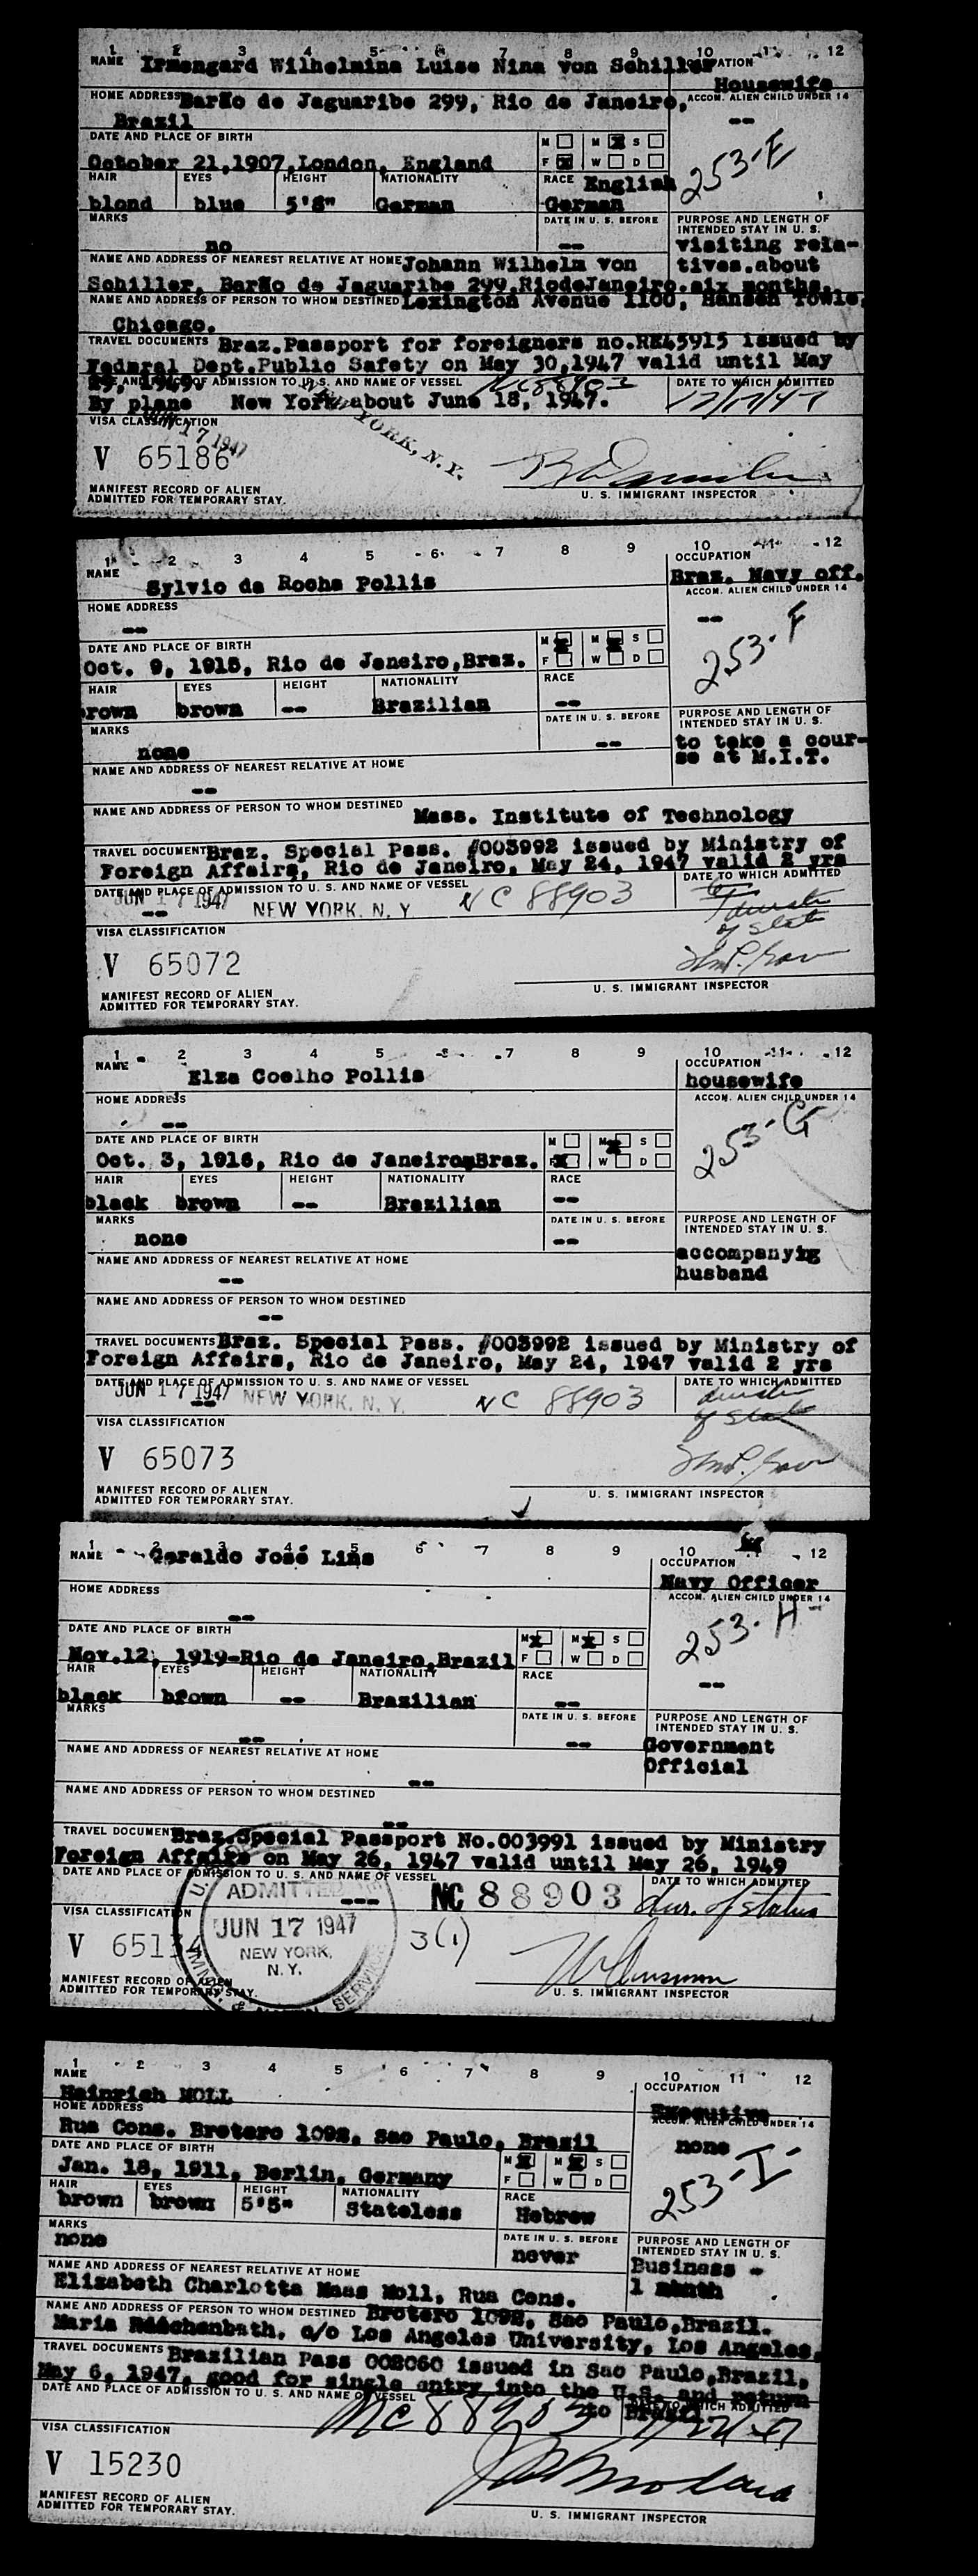 1 2 3 4 5 6 7 8 9 10 11 12
NAME Irmengard Wilhelmina Luise Nina von Schiller OCCUPATION
Housewife
HOME ADDRESS Barão de Jaguaribe 299, Rio de Janeiro, ACCOM. ALIEN CHILD UNDER 14
Brazil --
DATE AND PLACE OF BIRTH M M S
October 21,1907,London, England F W D 253-E
HAIR EYES HEIGHT NATIONALITY RACE English
blond blue 5'8" German German
MARKS DATE IN U. S. BEFORE PURPOSE AND LENGTH OF INTENDED STAY IN U. S.
no -- visiting rela-
NAME AND ADDRESS OF NEAREST RELATIVE AT HOME Johann Wilhelm von tives.about
Schiller, Barão de Jaguaribe 299,RiodeJaneiro. six months.
NAME AND ADDRESS OF PERSON TO WHOM DESTINED Lexington Avenue 1100, Hansen Towle,
Chicago.
TRAVEL DOCUMENTS Braz.Passport for foreigners no.RE45915 issued by
Federal Dept.Public Safety on May 30,1947 valid until May
29, 1949.
DATE AND PLACE OF ADMISSION TO U. S. AND NAME OF VESSEL NC88903 DATE TO WHICH ADMITTED
By plane New York about June 18, 1947. 12/17/47
VISA CLASSIFICATION 17 1947 NEW YORK, N.Y.
V 65186
MANIFEST RECORD OF ALIEN
ADMITTED FOR TEMPORARY STAY. U. S. IMMIGRANT INSPECTOR
1 2 3 4 5 6 7 8 9 10 11 12
NAME Sylvio da Rocha Pollis OCCUPATION
Braz. Navy off.
HOME ADDRESS ACCOM. ALIEN CHILD UNDER 14
-- --
DATE AND PLACE OF BIRTH M M S
Oct. 9, 1915, Rio de Janeiro,Braz. F W D 253-F
HAIR EYES HEIGHT NATIONALITY RACE
brown brown -- Brazilian --
MARKS DATE IN U. S. BEFORE PURPOSE AND LENGTH OF INTENDED STAY IN U. S.
none -- to take a cour-
se at M.I.T.
NAME AND ADDRESS OF NEAREST RELATIVE AT HOME
--
NAME AND ADDRESS OF PERSON TO WHOM DESTINED Mass. Institute of Technology
TRAVEL DOCUMENTS Braz. Special Pass. #003992 issued by Ministry of
Foreign Affairs, Rio de Janeiro, May 24, 1947 valid 2 yrs
DATE AND PLACE OF ADMISSION TO U. S. AND NAME OF VESSEL DATE TO WHICH ADMITTED
JUN 17 1947 NEW YORK. N. Y. NC 88903
-- of state
VISA CLASSIFICATION
V 65072
MANIFEST RECORD OF ALIEN
ADMITTED FOR TEMPORARY STAY. U. S. IMMIGRANT INSPECTOR
1 2 3 4 5 6 7 8 9 10 11 12
NAME Elza Coelho Pollis OCCUPATION
housewife
HOME ADDRESS ACCOM. ALIEN CHILD UNDER 14
--
DATE AND PLACE OF BIRTH M M S 253-G
Oct. 3, 1916, Rio de Janeiro,Braz. F W D
HAIR EYES HEIGHT NATIONALITY RACE
black brown -- Brazilian --
MARKS DATE IN U. S. BEFORE PURPOSE AND LENGTH OF INTENDED STAY IN U. S.
none -- accompanyig
husband
NAME AND ADDRESS OF NEAREST RELATIVE AT HOME
--
NAME AND ADDRESS OF PERSON TO WHOM DESTINED
--
TRAVEL DOCUMENTS Braz. Special Pass. #003992 issued by Ministry of
Foreign Affairs, Rio de Janeiro, May 24, 1947 valid 2 yrs
DATE AND PLACE OF ADMISSION TO U. S. AND NAME OF VESSEL DATE TO WHICH ADMITTED
JUN 17 1947 NEW YORK. N. Y. NC 88903
-- of state
VISA CLASSIFICATION
V 65073
MANIFEST RECORD OF ALIEN
ADMITTED FOR TEMPORARY STAY. U. S. IMMIGRANT INSPECTOR
1 2 3 4 5 6 7 8 9 10 12
NAME Geraldo José Lins OCCUPATION
Navy Officer
HOME ADDRESS ACCOM. ALIEN CHILD UNDER 14
-- 253-H
DATE AND PLACE OF BIRTH M M S
Nov.12, 1919-Rio de Janeiro,Brazil F W D
HAIR EYES HEIGHT NATIONALITY RACE --
black brown -- Brazilian --
MARKS DATE IN U. S. BEFORE PURPOSE AND LENGTH OF INTENDED STAY IN U. S.
-- -- Government
Official
NAME AND ADDRESS OF NEAREST RELATIVE AT HOME
--
NAME AND ADDRESS OF PERSON TO WHOM DESTINED
--
TRAVEL DOCUMENTS Braz.Special Passport No.003991 issued by Ministry
Foreign Affairs on May 26, 1947 valid until May 26, 1949
DATE AND PLACE OF ADMISSION TO U. S. AND NAME OF VESSEL DATE TO WHICH ADMITTED
ADMITTED --- NC 88903 dur. of status
VISA CLASSIFICATION JUN 17 1947 3(1)
V 65134 NEW YORK, N.Y.
MANIFEST RECORD OF ALIEN
ADMITTED FOR TEMPORARY STAY. U. S. IMMIGRANT INSPECTOR
1 2 3 4 5 6 7 8 9 10 11 12
NAME Heinrich MOLL OCCUPATION
Executive
HOME ADDRESS ACCOM. ALIEN CHILD UNDER 14
Rua Cons. Brotero 1092, Sao Paulo, Brazil none
DATE AND PLACE OF BIRTH M M S
Jan. 18, 1911, Berlin, Germany F W D 253-I
HAIR EYES HEIGHT NATIONALITY RACE
brown brown 5'5" Stateless Hebrew
MARKS DATE IN U. S. BEFORE PURPOSE AND LENGTH OF INTENDED STAY IN U. S.
none never Business -
1 month
NAME AND ADDRESS OF NEAREST RELATIVE AT HOME
Elizabeth Charlotta Maas Moll, Rua Cons.
NAME AND ADDRESS OF PERSON TO WHOM DESTINED Brotero 1092, Sao Paulo,Brazil.
Maria c/o Los Angeles University, Los Angeles,
TRAVEL DOCUMENTS Brazilian Pass 008060 issued in Sao Paulo,Brazil,
May 6, 1947, good for single entry into the U.S. and return
DATE AND PLACE OF ADMISSION TO U. S. AND NAME OF VESSEL to Brazil. DATE TO WHICH ADMITTED
NC 88903
VISA CLASSIFICATION
V 15230
MANIFEST RECORD OF ALIEN
ADMITTED FOR TEMPORARY STAY. U. S. IMMIGRANT INSPECTOR